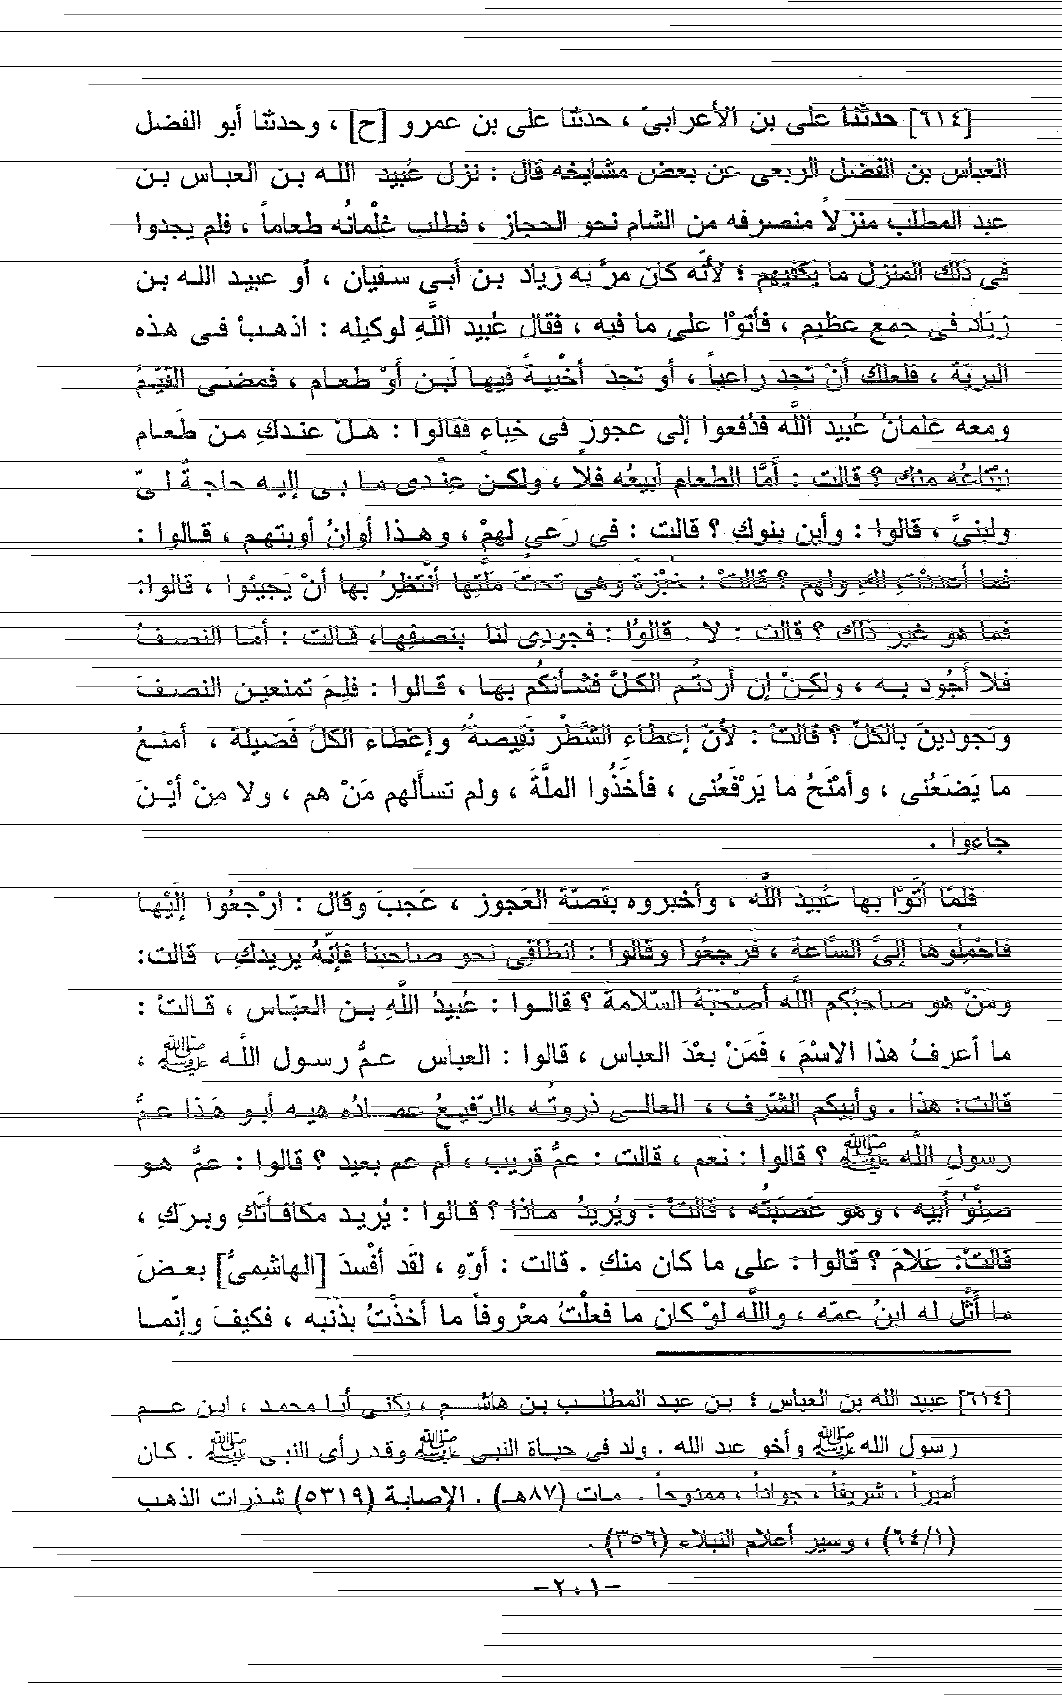 [٦١٤] حدثنا على بن الأعرابىّ ، حدثنا على بن عمرو [ح] ، وحدثنا أبو الفضل
العباس بن الفضل الربعى عن بعض مشايخه قال : نزل عُبيد الله بن العباس بن
عبد المطلب منزلاً منصرفه من الشام نحو الحجاز ، فطلب غلْمانُه طعاماً ، فلم يجدوا
فى ذلك المنزل ما يكفيهم ؛ لأنَّه كان مرَّ به زياد بن أبى سفيان ، أو عبيد الله بن
زياد فى جمع عظيم ، فأتوْا على ما فيه ، فقال عُبيد اللَّهِ لوكيله : اذهب فى هذه
البريّة ، فلعلك أنْ تجد راعياً ، أو تجدَ أخْبيةً فيها لَبن أوْ طعام ، فمضى القَيّمُ
ومعه غلمانُ عُبيد اللَّه فدُفعوا إلى عجوزٍ فى خِباءٍ فقالوا : هلْ عندكِ من طعام
نبْتاعُه منك ؟ قالت : أمَّا الطعام أبيعُه فلا ، ولكن عِنْدى ما بى إليه حاجةٌ لىّ
ولبنىَّ ، قالوا : وأين بنوكِ ؟ قالت : فى رَعىٍ لهمْ ، وهذا أوانُ أوبتهم ، قالوا :
فما أعددْتِ لكِ ولهم ؟ قالتْ : خبْزة وهى تحتَ ملَّتِها أنْتظِرُ بها أنْ يَجيئوا ، قالوا:
فما هو غير ذلك ؟ قالت : لا . قالوُا : فجودى لنا بنصفِها، قالت : أمّا النصفُ
فلا أجُود به ، ولكِنْ إن أردتُم الكلَّ فشأنكُم بها ، قالوا : فلِمَ تمنعين النصفَ
وتجودينَ بالكلِّ ؟ قالتْ : لأنّ إعطاءِ الشَّطْر نَقِيصةٌ وإعْطاءَ الكلِّ فَضيلة ، أمنعُ
ما يَضَعُنى ، وأمْنَحُ ما يَرْفَعُنى ، فأخَذُوا الملَّةَ ، ولم تسألهم مَنْ هم ، ولا مِنْ أيْنَ
جاءوا .
فلمّا أتَوْا بها عُبيدَ اللَّه ، وأخبروه بقصّة العَجوز ، عَجبَ وقال : ارْجعُوا إلَيْها
فاحْمِلُوها إلىَّ السَّاعة ، فرجعُوا وقالوا : انطلقِى نحو صاحبنا فإنّهُ يريدكِ ، قالت:
ومَنْ هو صاحبُكم اللَّه أصْحَبَهُ السّلامةَ ؟ قالوا : عُبيدُ اللَّهِ بن العبّاس ، قالتْ :
ما أعرفُ هذا الاسْمَ ، فَمَنْ بعْدَ العباس ، قالوا : العباس عمُّ رسول اللَّه ﷺ ،
قالت: هذا . وأبيكم الشّرف ، العالى ذروتُه ،الرّفيعُ عماده هيه أبو هَذا عمُّ
رسولِ اللَّه ﷺ ؟ قالوا : نعم ، قالت : عمُّ قريب ، أم عم بعيد ؟ قالوا : عمُّ هو
صِنْوُ أبيه ، وهو عَصَبتُه ، قالتْ : ويُريدُ ماذا ؟ قالوا : يُريد مكافأتَكِ وبرّكِ ،
قالتْ: عَلامَ ؟ قالوا : على ما كان منكِ . قالت : أوّهِ ، لقَد أفْسدَ [الهاشمىُّ] بعضَ
ما أثَّل له ابنُ عمّه ، واللَّه لوْ كان ما فعلْتُ معْروفاً ما أخذْتُ بذَنبه ، فكيفَ وإنّما
[٦١٤] عبيد الله بن العباس ؛ بن عبد المطلب بن هاشم ، يكنى أبا محمد ، ابن عم
رسول الله ﷺ وأخو عبد الله . ولد فى حياة النبى ﷺ وقد رأى النبى ﷺ . كان
أميراً ، شريفاً ، جواداً ، ممدوحاً . مات (٨٧هـ) . الإصابة (٥٣١٩) شذرات الذهب
(٦٤/١) ، وسير أعلام النبلاء (٣٥٦) .
-٢٠١-